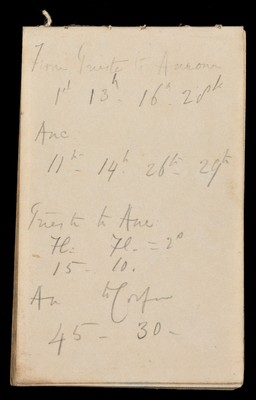 From Trieste to Ancona
1st 13th - 16th - 28th
Anc
11th - 14th 26th - 29th
Trieste to Anc
Fl. - Fl. - = 2º
15 - 10.
An to Corfu
45 - 30 -